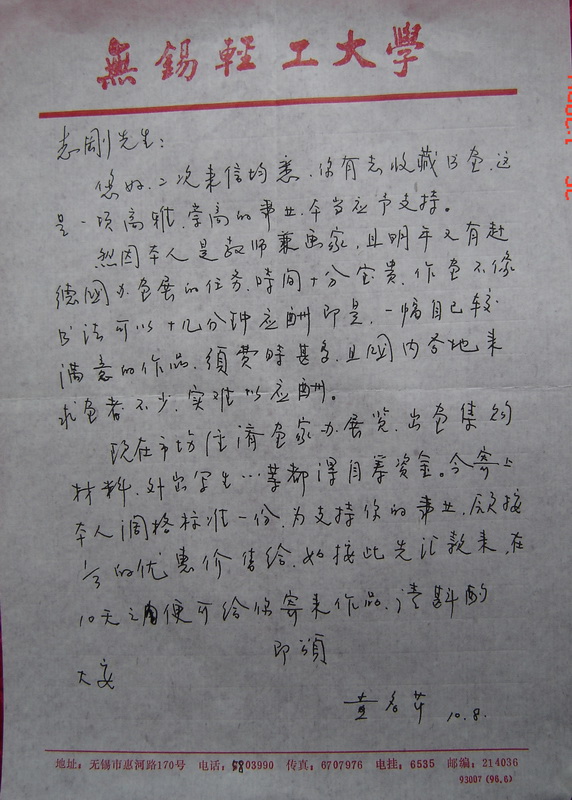 無錫輕工大學
志剛先生：
您好，二次来信均悉，你有志收藏书画，这
是一项高雅、崇高的事业，本当应予支持。
然因本人是教师兼画家，且明年又有赴
德國办画展的任务，時间十分宝贵，作画不像
书法可以十几分钟应酬即是，一幅自己较
满意的作品，須费時甚多，且國内各地来
求画者不少，实难以应酬。
现在市场经濟画家办展览，出画集的
材料，外出写生…等都得自筹资金。今寄上
本人润格标准一份，为支持你的事业，願按
⅓的优惠价售给，如接此先汇款来，在
10天之内便可给你寄来作品，请斟酌
即頌
大安
10.8.
地址：无锡市惠河路170号 电话：5803990 传真：6707976 电挂：6535 邮编：214036
93007 (96.6)